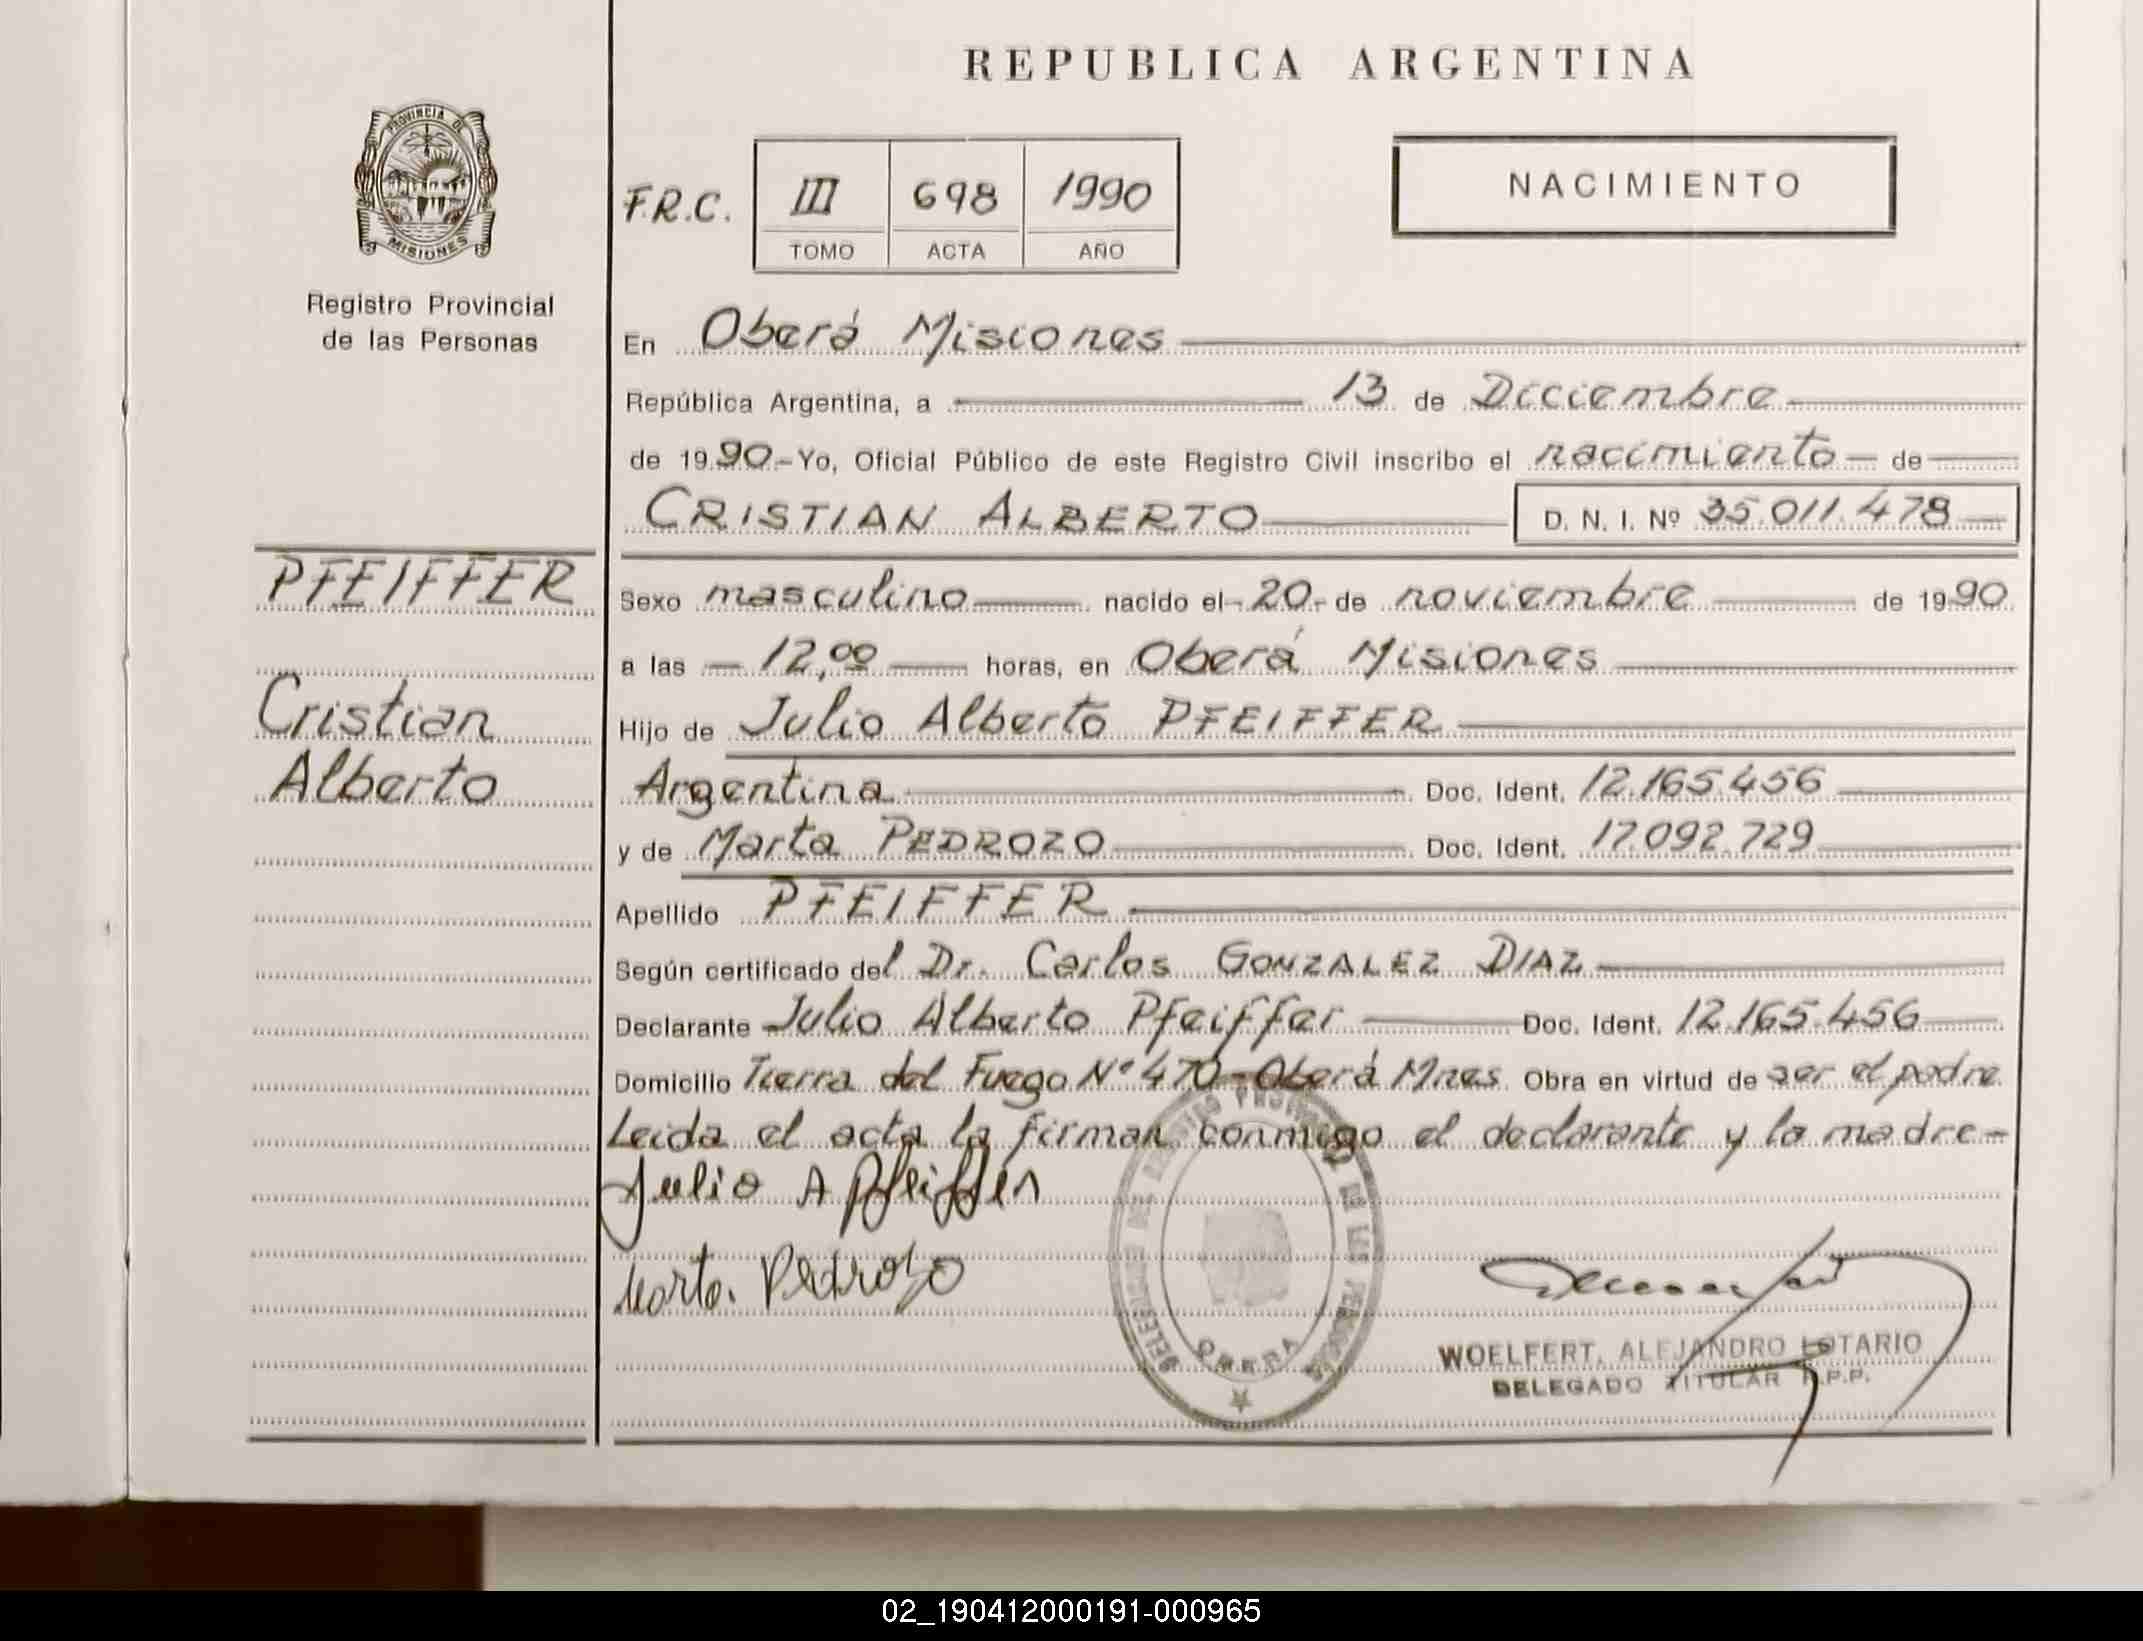 REPUBLICA ARGENTINA
PROVINCIA DE
MISIONES
Registro Provincial
de las Personas
F.R.C. III 698 1990
TOMO ACTA AÑO
NACIMIENTO
En Oberá Misiones
República Argentina, a 13 de Diciembre
de 1990.- Yo, Oficial Público de este Registro Civil inscribo el nacimiento de
CRISTIAN ALBERTO D. N. I. Nº 35.011.478
PFEIFFER
Cristian
Alberto
Sexo masculino nacido el - 20 - de noviembre de 1990
a las 12,00 horas, en Oberá Misiones
Hijo de Julio Alberto PFEIFFER
Argentina Doc. Ident. 12.165.456
y de Marta PEDROZO Doc. Ident. 17.092.729
Apellido PFEIFFER
Según certificado del Dr. Carlos GONZALEZ DIAZ
Declarante Julio Alberto Pfeiffer Doc. Ident. 12.165.456
Domicilio Tierra del Fuego Nº 470 - Oberá Mnes. Obra en virtud de ser el padre
Leida el acta la firman conmigo el declarante y la madre-
Julio A Pfeiffer
Marta. Pedrozo
OBERA
WOELFERT, ALEJANDRO LOTARIO
DELEGADO TITULAR R.P.P.
02_190412000191-000965